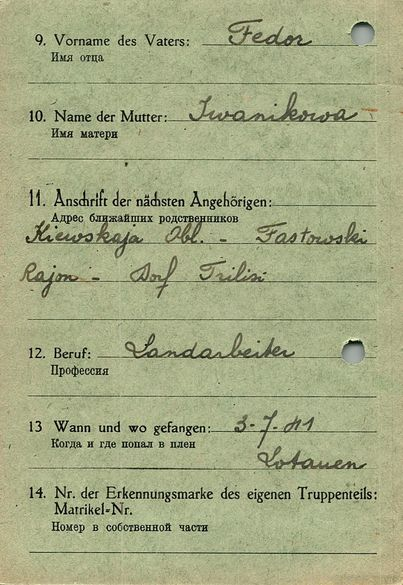 9. Vorname des Vaters: Fedor
Имя отца
10. Name der Mutter: Iwanikowa
Имя матери
11. Anschrift der nächsten Angehörigen:
Адрес ближайших родственников
Kiewskaja Obl. - Fastowski
Rajon - Dorf Trilisi
12. Beruf: Landarbeiter
Профессия
13 Wann und wo gefangen: 3-7-41
Когда и где попал в плен
Lotauen
14. Nr. der Erkennungsmarke des eigenen Truppenteils:
Matrikel-Nr.
Номер в собственной части